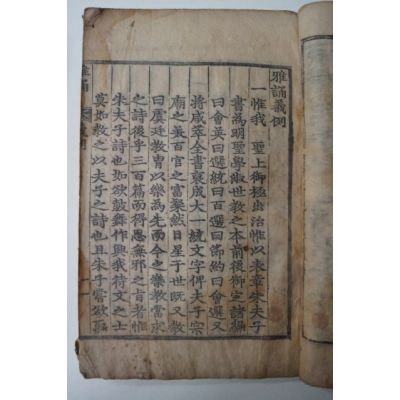 雅誦義例
一惟我 聖上御極出治惟以表章朱夫子
書為明聖學淑世教之本前後御定諸編
曰會英曰選統曰百選曰節約曰會選又
將咸萃全書裒成大一統文字俾夫子宗
廟之美百官之富粲然日星于世既又教
曰虞廷教冑以樂為先而今之樂教當求
之詩後乎三百篇而得思無邪之旨者惟
朱夫子詩也如欲鼓舞作興我待文之士
莫如教之以夫子之詩也且朱子嘗欲
雅誦 義例 一